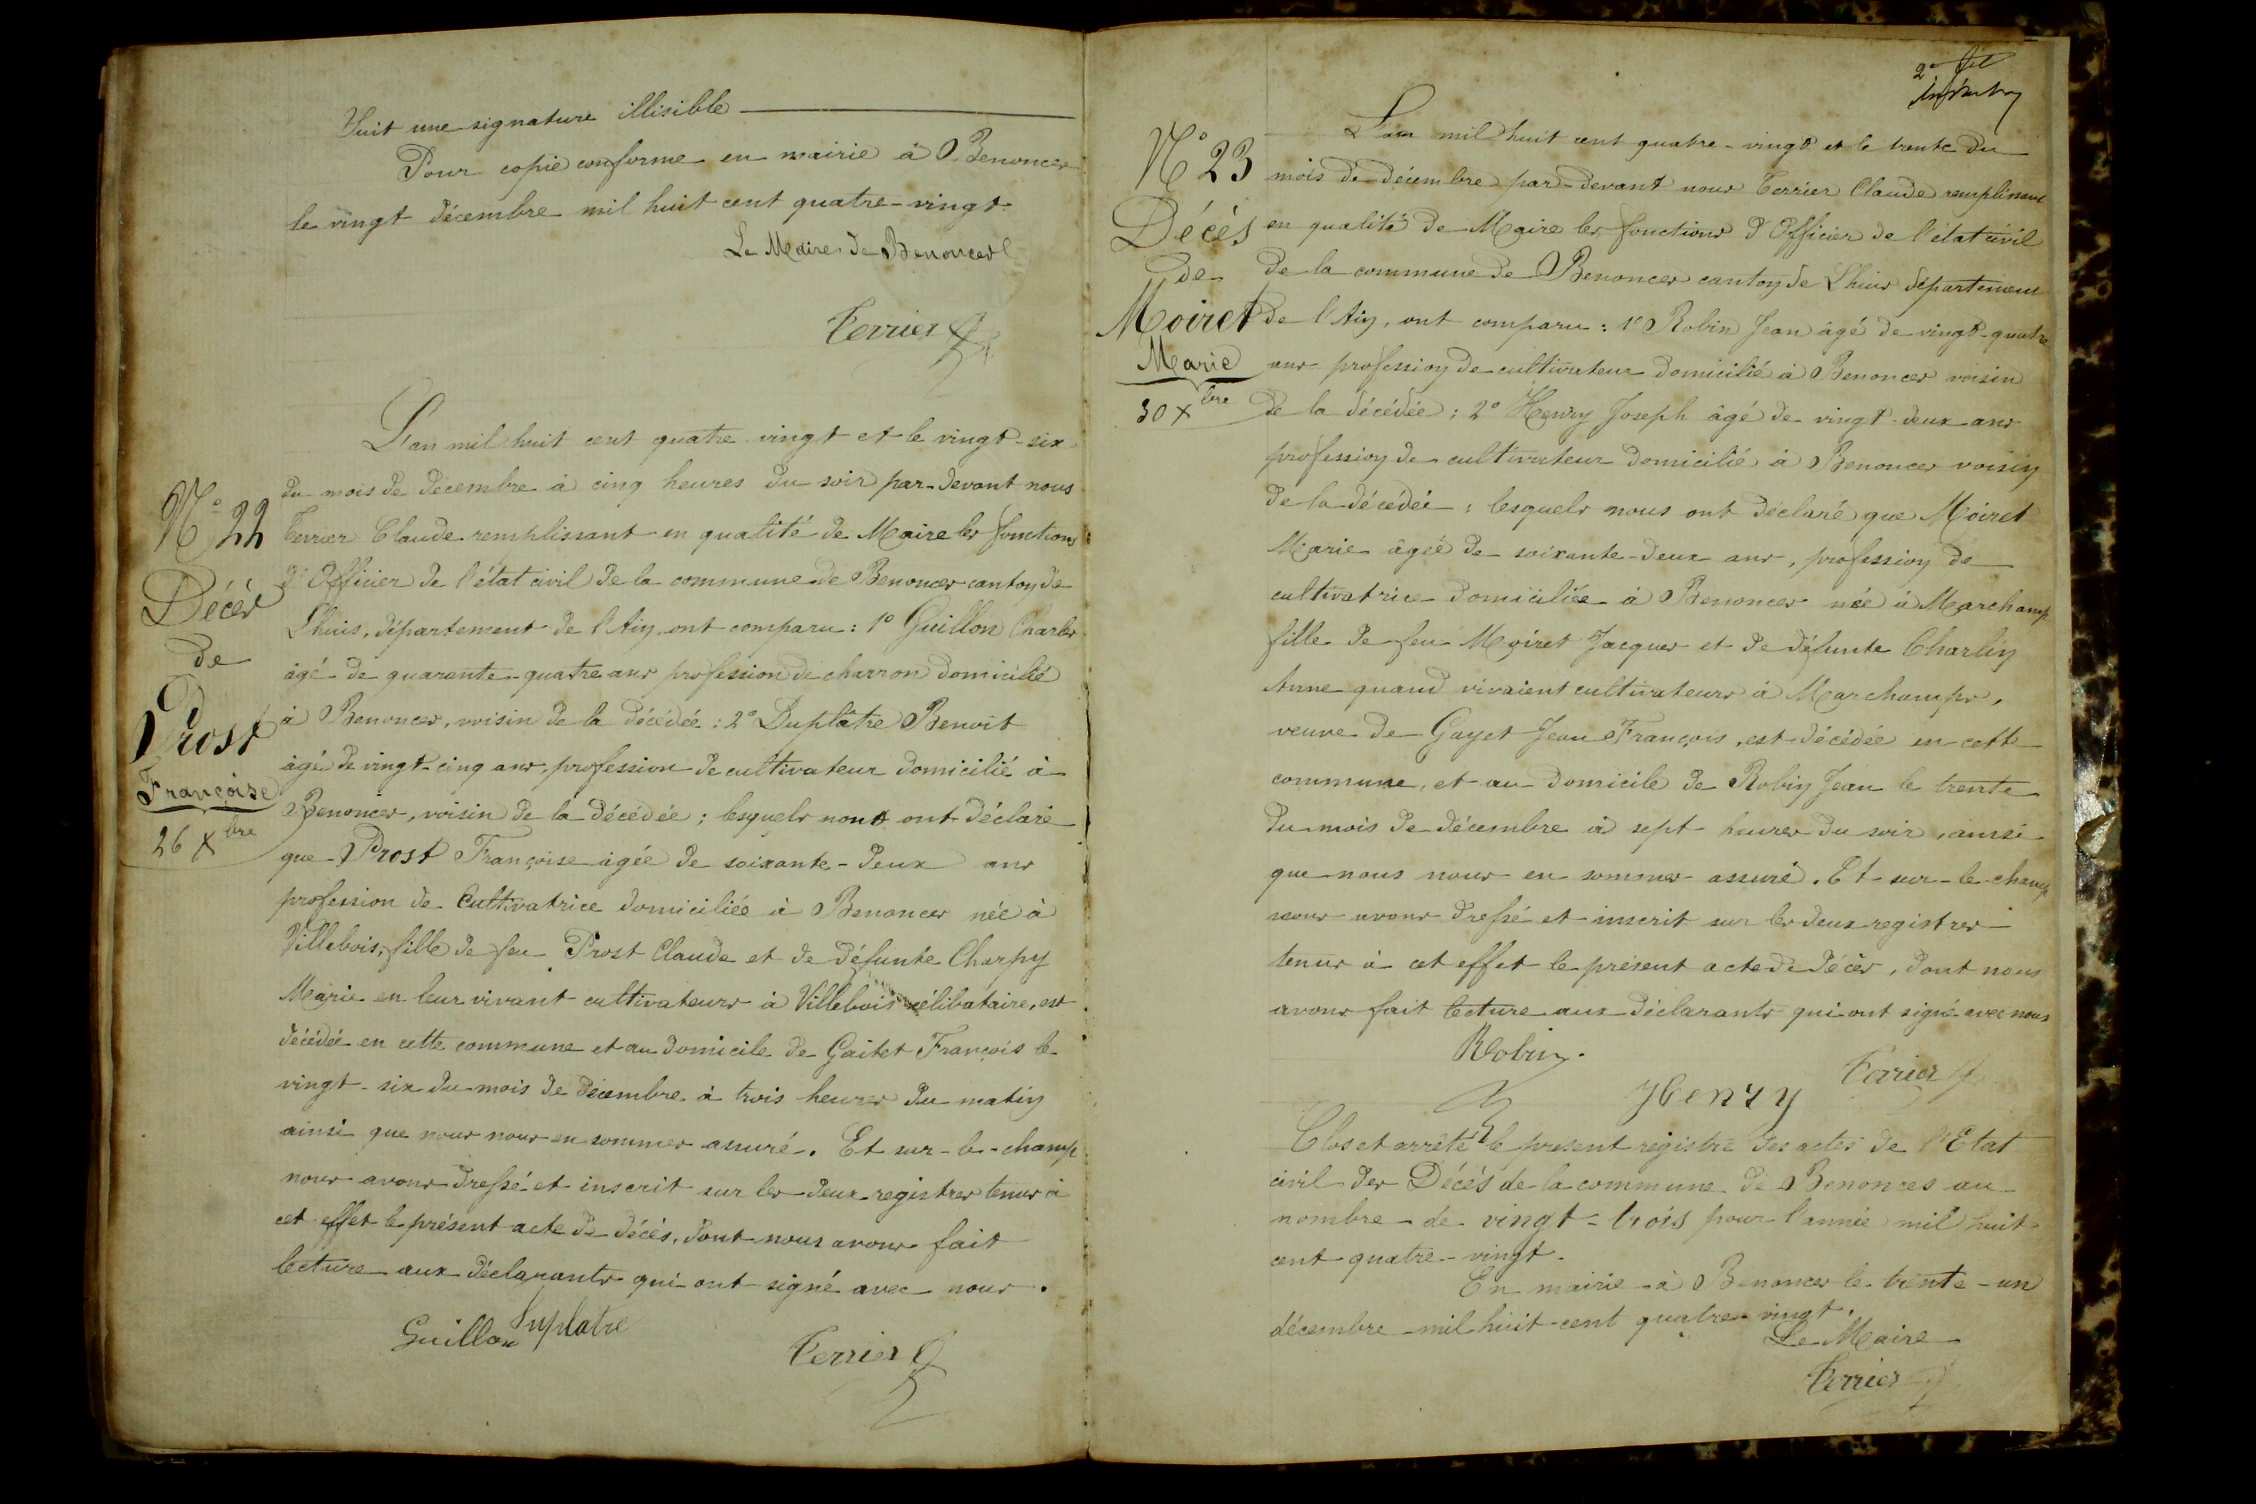 Suit une signature illisible
Pour copie conforme en mairie à Benonces
le vingt décembre mil huit cent quatre-vingt.
Le Maire de Benonces
Terrier
N° 22
Décès
de
Prost
Françoise
26 Xbre
L'an mil huit cent quatre vingt et le vingt-six
du mois de décembre à cinq heures du soir par-devant nous
Terrier Claude remplissant en qualité de Maire les fonctions
d'Officier de l'état civil de la commune de Benonces canton de
Lhuis, département de l'Ain, ont comparu : 1° Guillon Charles
âgé de quarante-quatre ans profession de charron domicilié
à Benonces, voisin de la décédée : 2° Duplâtre Benoit
âgé de vingt-cinq ans, profession de cultivateur domicilié à
Benonces, voisin de la décédée ; lesquels nous ont déclaré
que Prost Françoise âgée de soixante-deux ans
profession de Cultivatrice domiciliée à Benonces née à
Villebois, fille de feu Prost Claude et de défunte Charpy
Marie en leur vivant cultivateurs à Villebois célibataire, est
décédée en cette commune et au domicile de Gaitet François le
vingt-six du mois de décembre à trois heures du matin
ainsi que nous nous en sommes assuré. Et sur-le-champ
nous avons dressé et inscrit sur les deux registres tenus à
cet effet le présent acte de décès, dont nous avons fait
lecture aux déclarants qui ont signé avec nous.
Guillon Duplatre
Terrier
2e
N° 23
Décès
de
Moiret
Marie
30 Xbre
L'an mil huit cent quatre-vingt et le trente du
mois de décembre par-devant nous Terrier Claude remplissant
en qualité de Maire les fonctions d'Officier de l'état civil
de la commune de Benonces canton de Lhuis département
de l'Ain, ont comparu : 1° Robin Jean âgé de vingt-quatre
ans profession de cultivateur domicilié à Benonces voisin
de la décédée ; 2° Henry Joseph âgé de vingt-deux ans
profession de cultivateur domicilié à Benonces voisin
de la décédée ; lesquels nous ont déclaré que Moiret
Marie âgée de soixante-deux ans, profession de
cultivatrice domiciliée à Benonces née à Marchamp
fille de feu Moiret Jacques et de défunte Charlin
Anne quand vivaient cultivateurs à Marchamps,
veuve de Gayet Jean François, est décédée en cette
commune, et au domicile de Robin Jean le trente
du mois de décembre à sept heures du soir, ainsi
que nous nous en sommes assuré. Et sur-le-champ
nous avons dressé et inscrit sur les deux registres
tenus à cet effet le présent acte de décès, dont nous
avons fait lecture aux déclarants qui ont signé avec nous
Robin.
Henry Terrier
Clos et arrêté le présent registre des actes de l'Etat
civil des Décès de la commune de Benonces au
nombre de vingt-trois pour l'année mil huit
cent quatre-vingt.
En mairie à Benonces le trente-un
décembre mil huit-cent quatre-vingt.
Le Maire
Terrier